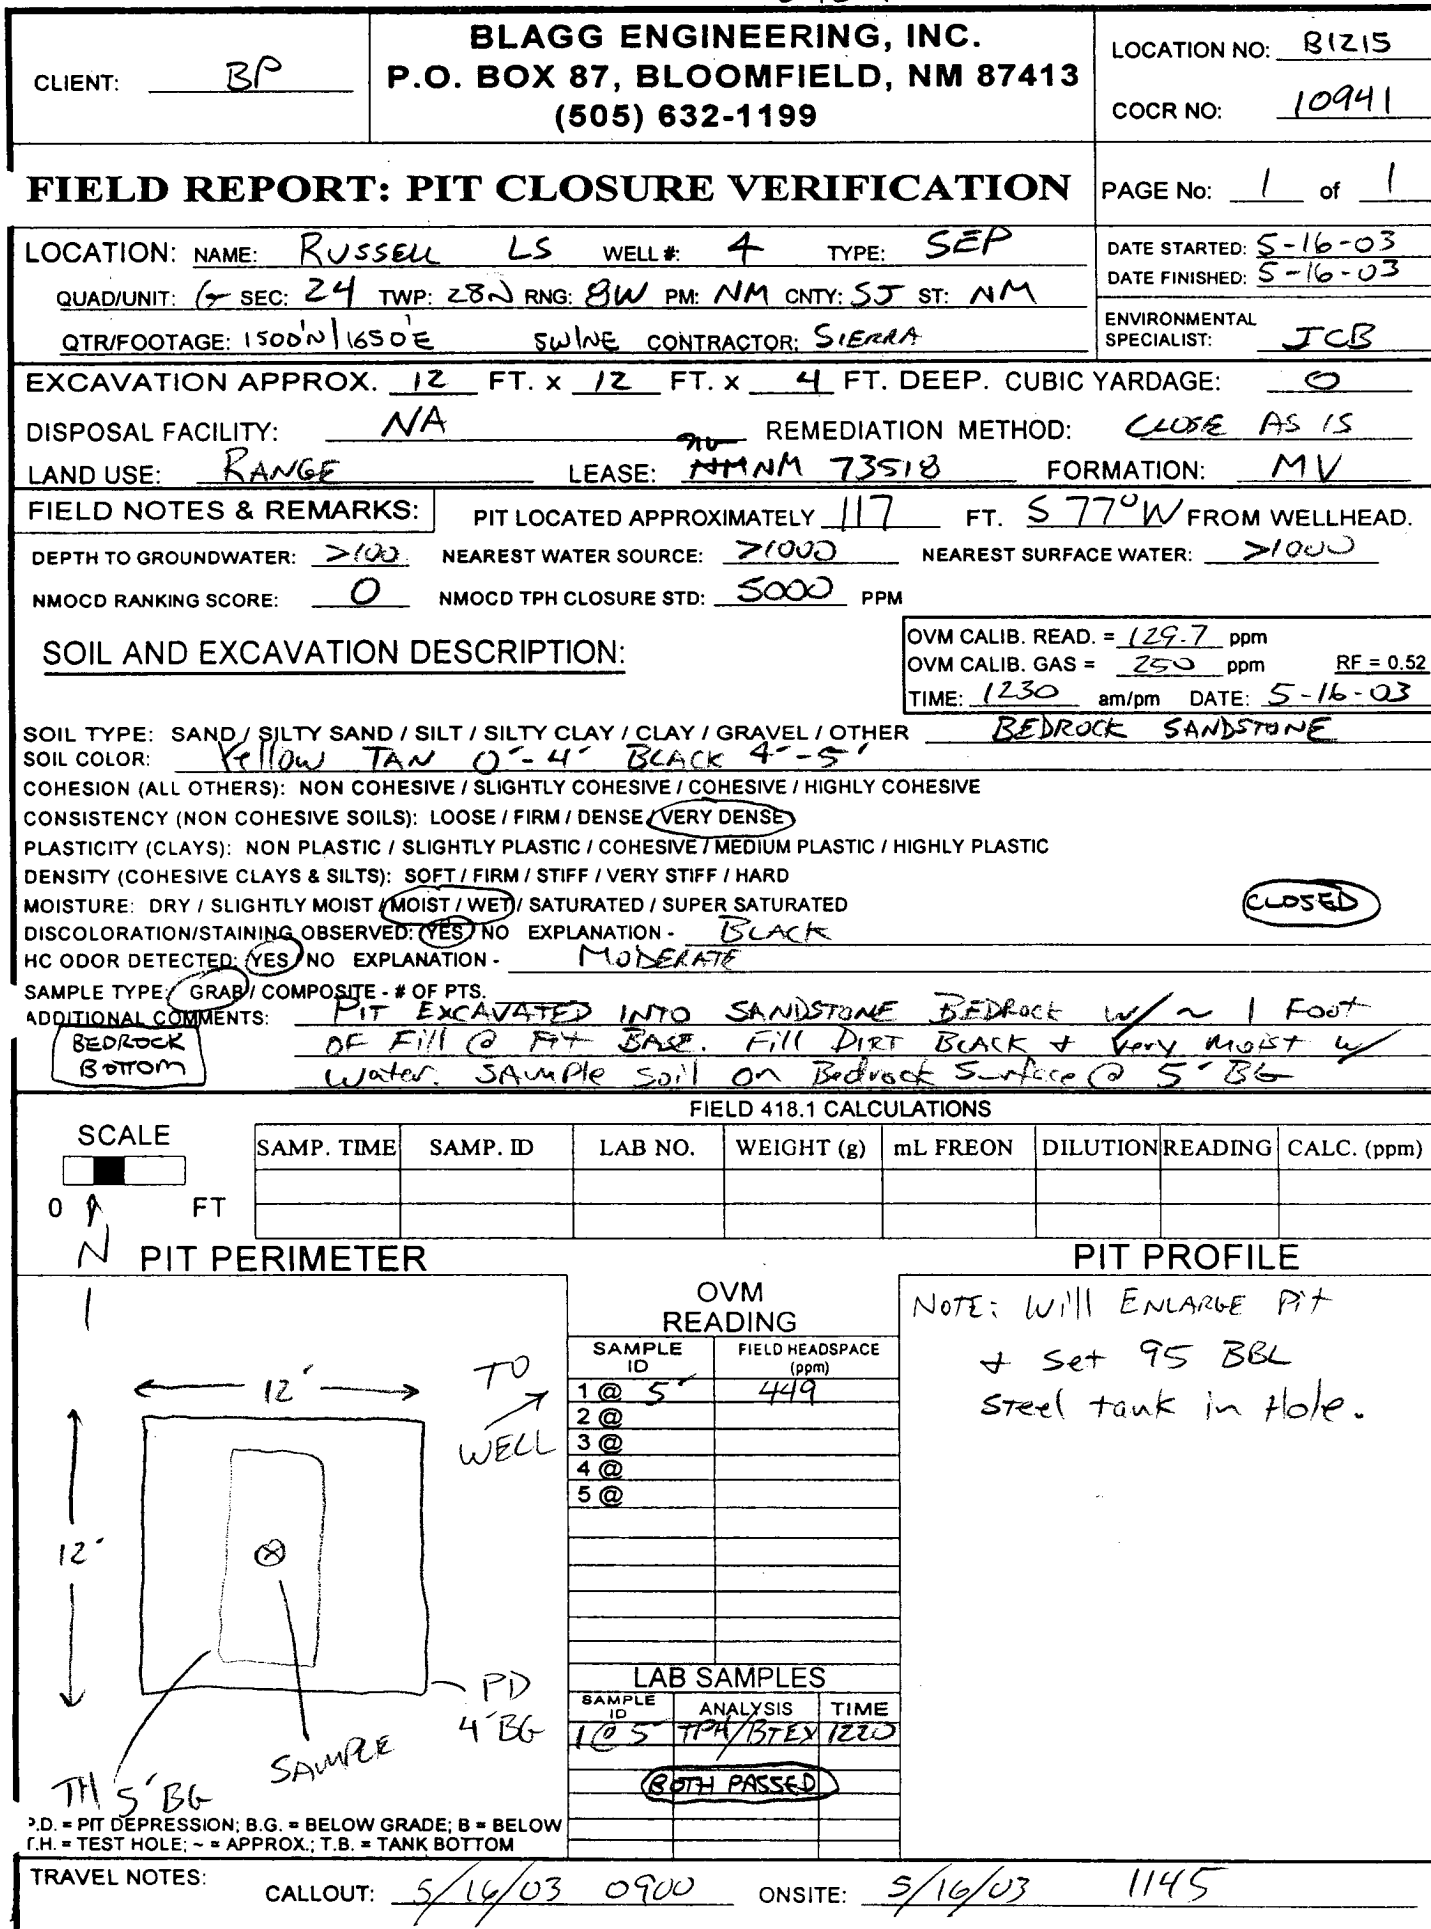 BLAGG ENGINEERING, INC.
P.O. BOX 87, BLOOMFIELD, NM 87413
(505) 632-1199
CLIENT: BP
LOCATION NO: B1215
COCR NO: 10941
FIELD REPORT: PIT CLOSURE VERIFICATION
PAGE No: 1 of 1
LOCATION: NAME: RUSSELL LS WELL #: 4 TYPE: SEP
QUAD/UNIT: G SEC: 24 TWP: 28N RNG: 8W PM: NM CNTY: SJ ST: NM
QTR/FOOTAGE: 1500'N/1650'E SW/NE CONTRACTOR: SIERRA
DATE STARTED: 5-16-03
DATE FINISHED: 5-16-03
ENVIRONMENTAL
SPECIALIST: JCB
EXCAVATION APPROX. 12 FT. x 12 FT. x 4 FT. DEEP. CUBIC YARDAGE: 0
DISPOSAL FACILITY: NA REMEDIATION METHOD: CLOSE AS IS
LAND USE: RANGE LEASE: NM 73518 FORMATION: MV
FIELD NOTES & REMARKS: PIT LOCATED APPROXIMATELY 117 FT. S 77° W FROM WELLHEAD.
DEPTH TO GROUNDWATER: >100 NEAREST WATER SOURCE: >1000 NEAREST SURFACE WATER: >1000
NMOCD RANKING SCORE: 0 NMOCD TPH CLOSURE STD: 5000 PPM
SOIL AND EXCAVATION DESCRIPTION:
OVM CALIB. READ. = 129.7 ppm
OVM CALIB. GAS = 250 ppm RF = 0.52
TIME: 1230 am/pm DATE: 5-16-03
SOIL TYPE: SAND / SILTY SAND / SILT / SILTY CLAY / CLAY / GRAVEL / OTHER BEDROCK SANDSTONE
SOIL COLOR: Yellow TAN 0'-4' BLACK 4'-5'
COHESION (ALL OTHERS): NON COHESIVE / SLIGHTLY COHESIVE / COHESIVE / HIGHLY COHESIVE
CONSISTENCY (NON COHESIVE SOILS): LOOSE / FIRM / DENSE / VERY DENSE
PLASTICITY (CLAYS): NON PLASTIC / SLIGHTLY PLASTIC / COHESIVE / MEDIUM PLASTIC / HIGHLY PLASTIC
DENSITY (COHESIVE CLAYS & SILTS): SOFT / FIRM / STIFF / VERY STIFF / HARD
MOISTURE: DRY / SLIGHTLY MOIST / MOIST / WET / SATURATED / SUPER SATURATED
CLOSED
DISCOLORATION/STAINING OBSERVED: YES / NO EXPLANATION - BLACK
HC ODOR DETECTED: YES / NO EXPLANATION - MODERATE
SAMPLE TYPE: GRAB / COMPOSITE - # OF PTS.
ADDITIONAL COMMENTS: PIT EXCAVATED INTO SANDSTONE BEDROCK w/ ~ 1 Foot
OF Fill @ Pit BASE. Fill DIRT BLACK + Very Moist w/
Water. SAmple Soil on Bedrock Surface @ 5' BG
BEDROCK
BOTTOM
FIELD 418.1 CALCULATIONS
SCALE
0 FT
N
SAMP. TIME SAMP. ID LAB NO. WEIGHT (g) mL FREON DILUTION READING CALC. (ppm)
PIT PERIMETER
12'
12'
TO
WELL
PD
4' BG
SAMPLE
TH 5' BG
P.D. = PIT DEPRESSION; B.G. = BELOW GRADE; B = BELOW
T.H. = TEST HOLE; ~ = APPROX.; T.B. = TANK BOTTOM
OVM
READING
SAMPLE ID FIELD HEADSPACE (ppm)
1 @ 5' 449
2 @
3 @
4 @
5 @
LAB SAMPLES
SAMPLE ID ANALYSIS TIME
1 @ 5' TPH/BTEX 1220
BOTH PASSED
PIT PROFILE
NOTE: Will ENLARGE Pit
+ Set 95 BBL
Steel tank in Hole.
TRAVEL NOTES: CALLOUT: 5/16/03 0900 ONSITE: 5/16/03 1145